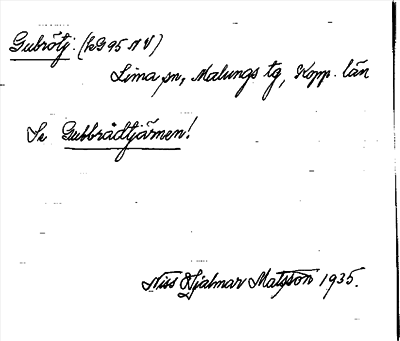 Gubrötj: (kG 95 NV)
Lima sn, Malungs tg, Kopp. län
Se Gubbrådtjärnen!
Niss Hjalmar Matsson 1935.